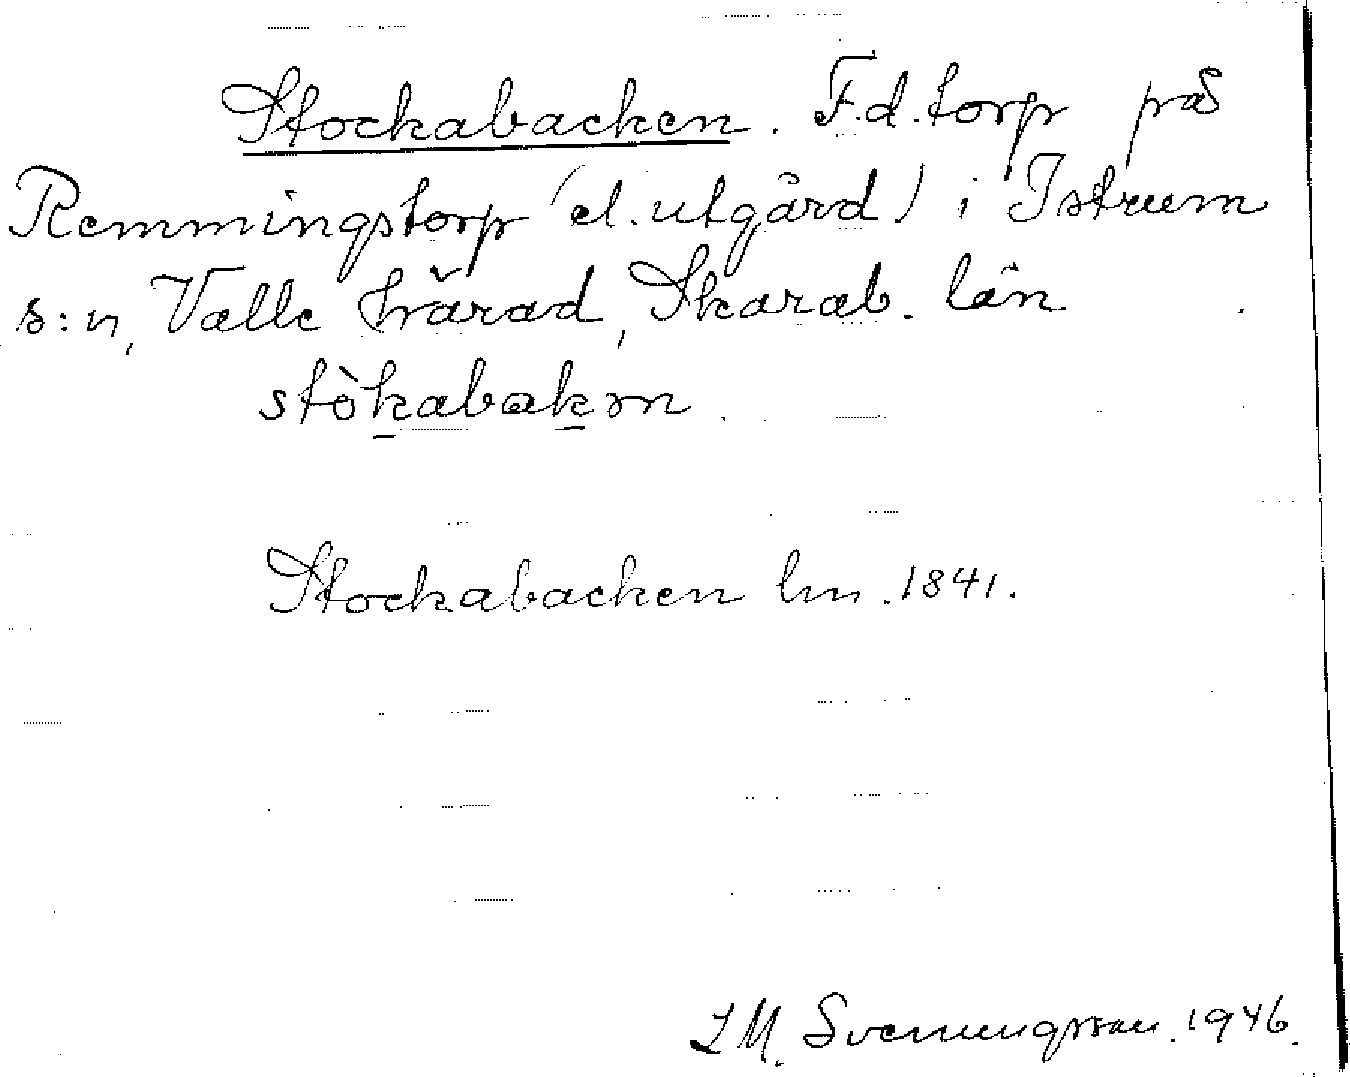 Stockabacken. F.d. torp på
Remmingstorp (el. utgård) i Istrum
s:n, Valle härad, Skarab. län
stòkabakən
Stockabacken lm. 1841.
I M. Svenungsson. 1946.